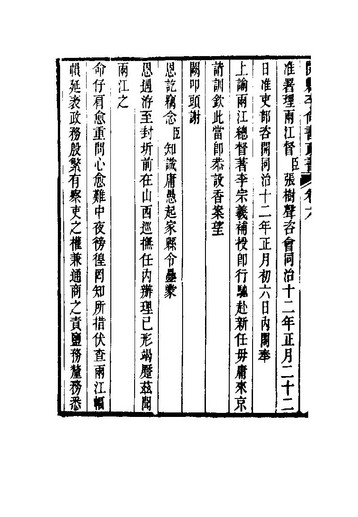 開縣李尚書政書 卷六
准署理兩江督臣張樹聲咨會同治十二年正月二十二
日准吏部咨開同治十二年正月初六日內閣奉
上諭兩江總督著李宗羲補授卽行馳赴新任毋庸來京
請訓欽此當卽恭設香案望
闕叩頭謝
恩訖竊念臣知識庸愚起家縣令疊蒙
恩遇洊至封圻前在山西巡撫任內辦理已形竭蹶茲聞
兩江之
命仔肩愈重問心愈難中夜徬徨罔知所措伏查兩江幅
𢄙延袤政務殷繁有察吏之權兼通商之責鹽務釐務悉